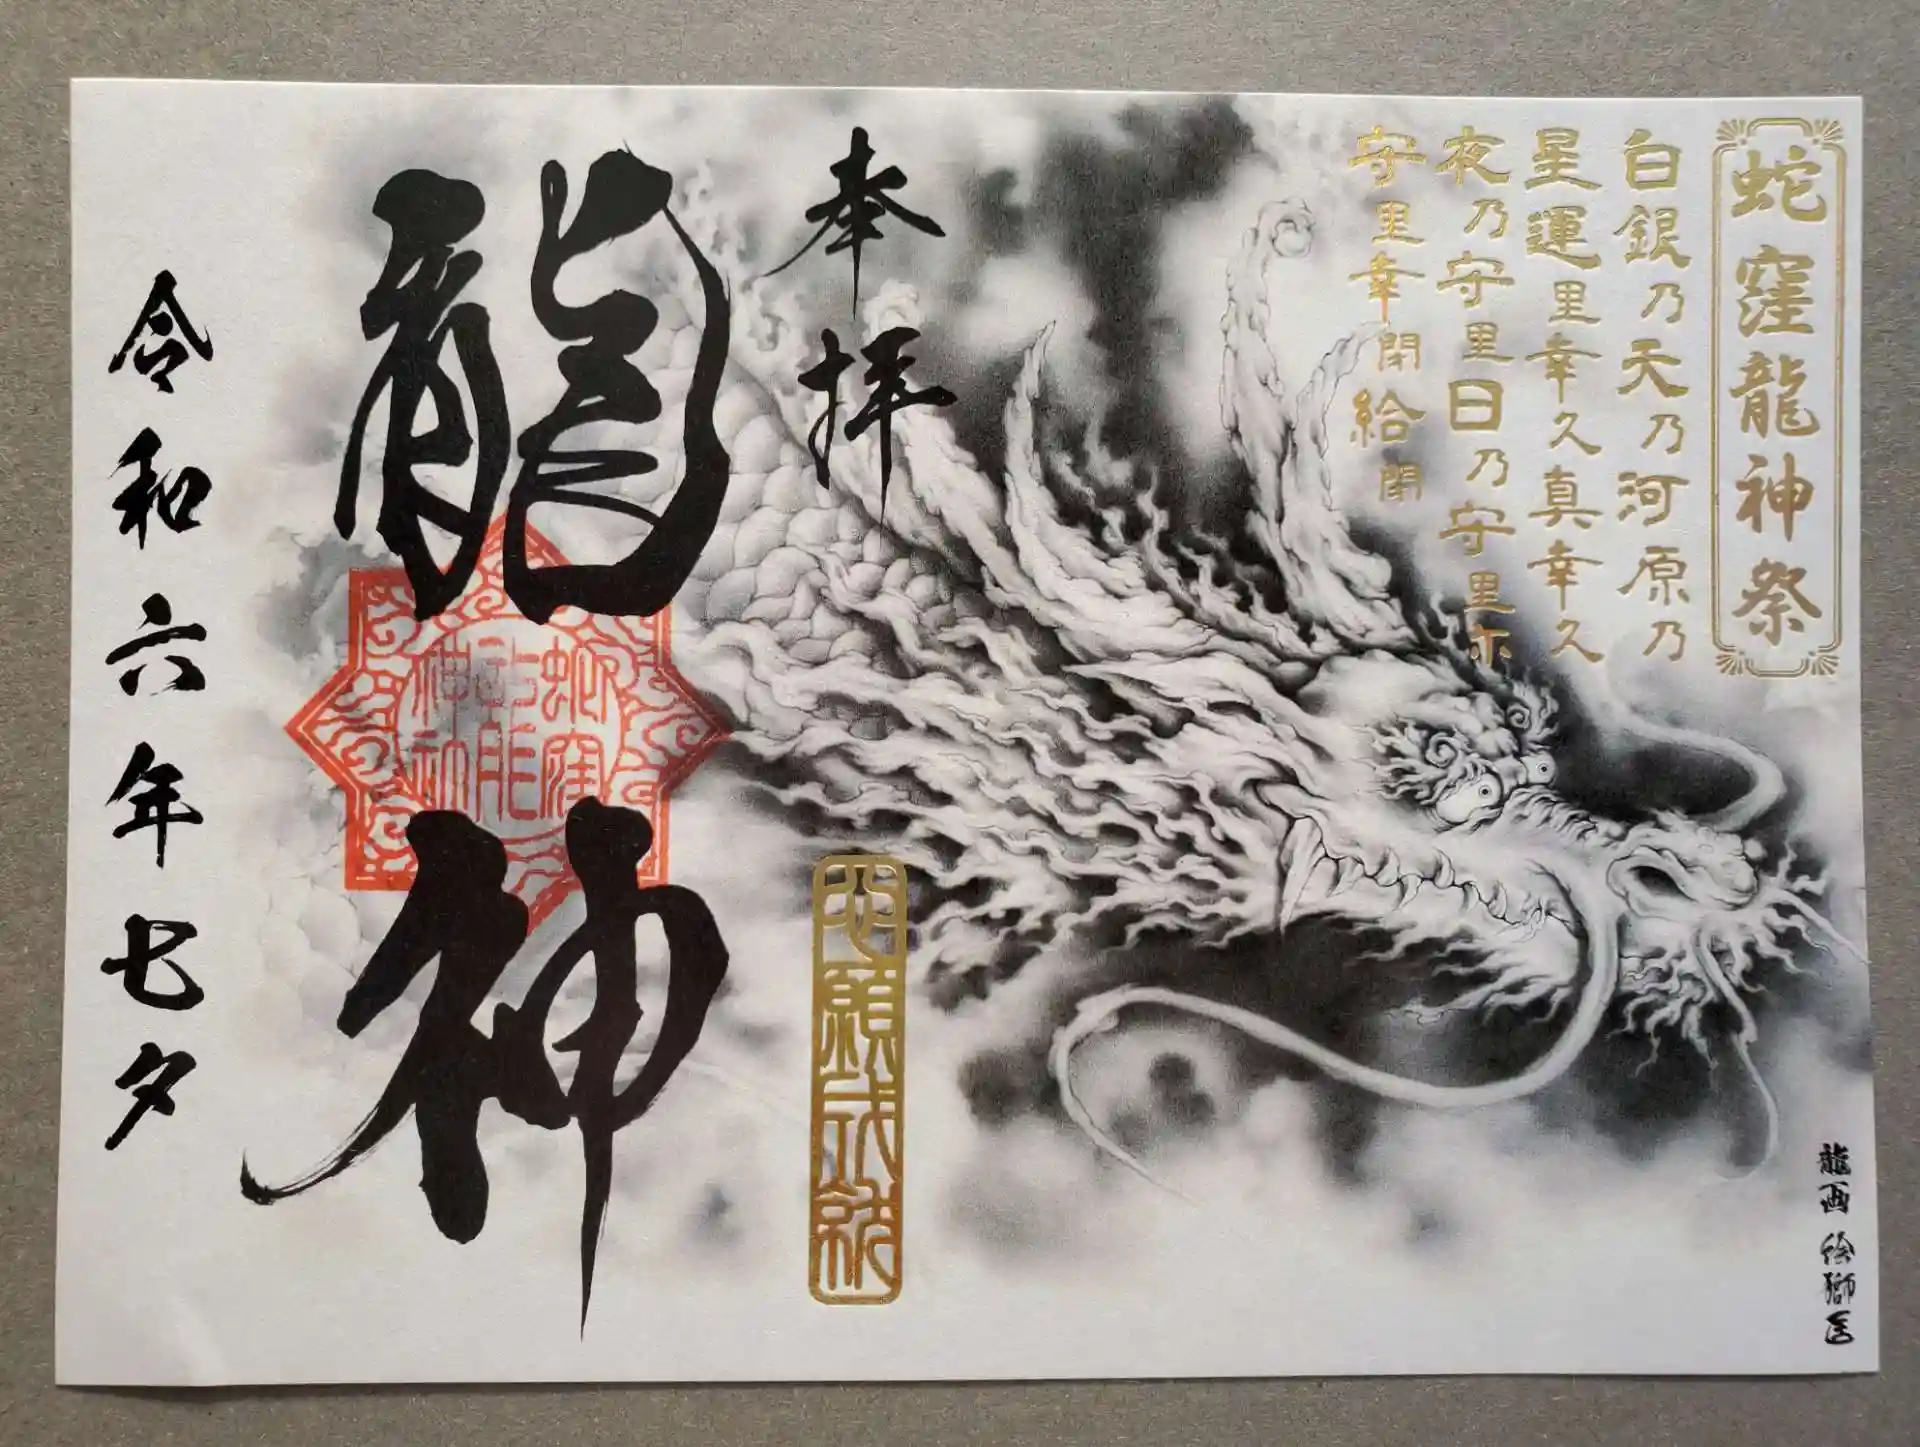 蛇窪龍神祭
白銀乃天乃河原乃
星運里幸久真幸久
夜乃守里日乃守里尓
守里幸閇給閇
奉拝
心願成就
龍神
蛇窪龍神社
令和六年七夕
龍画 絵獅匡